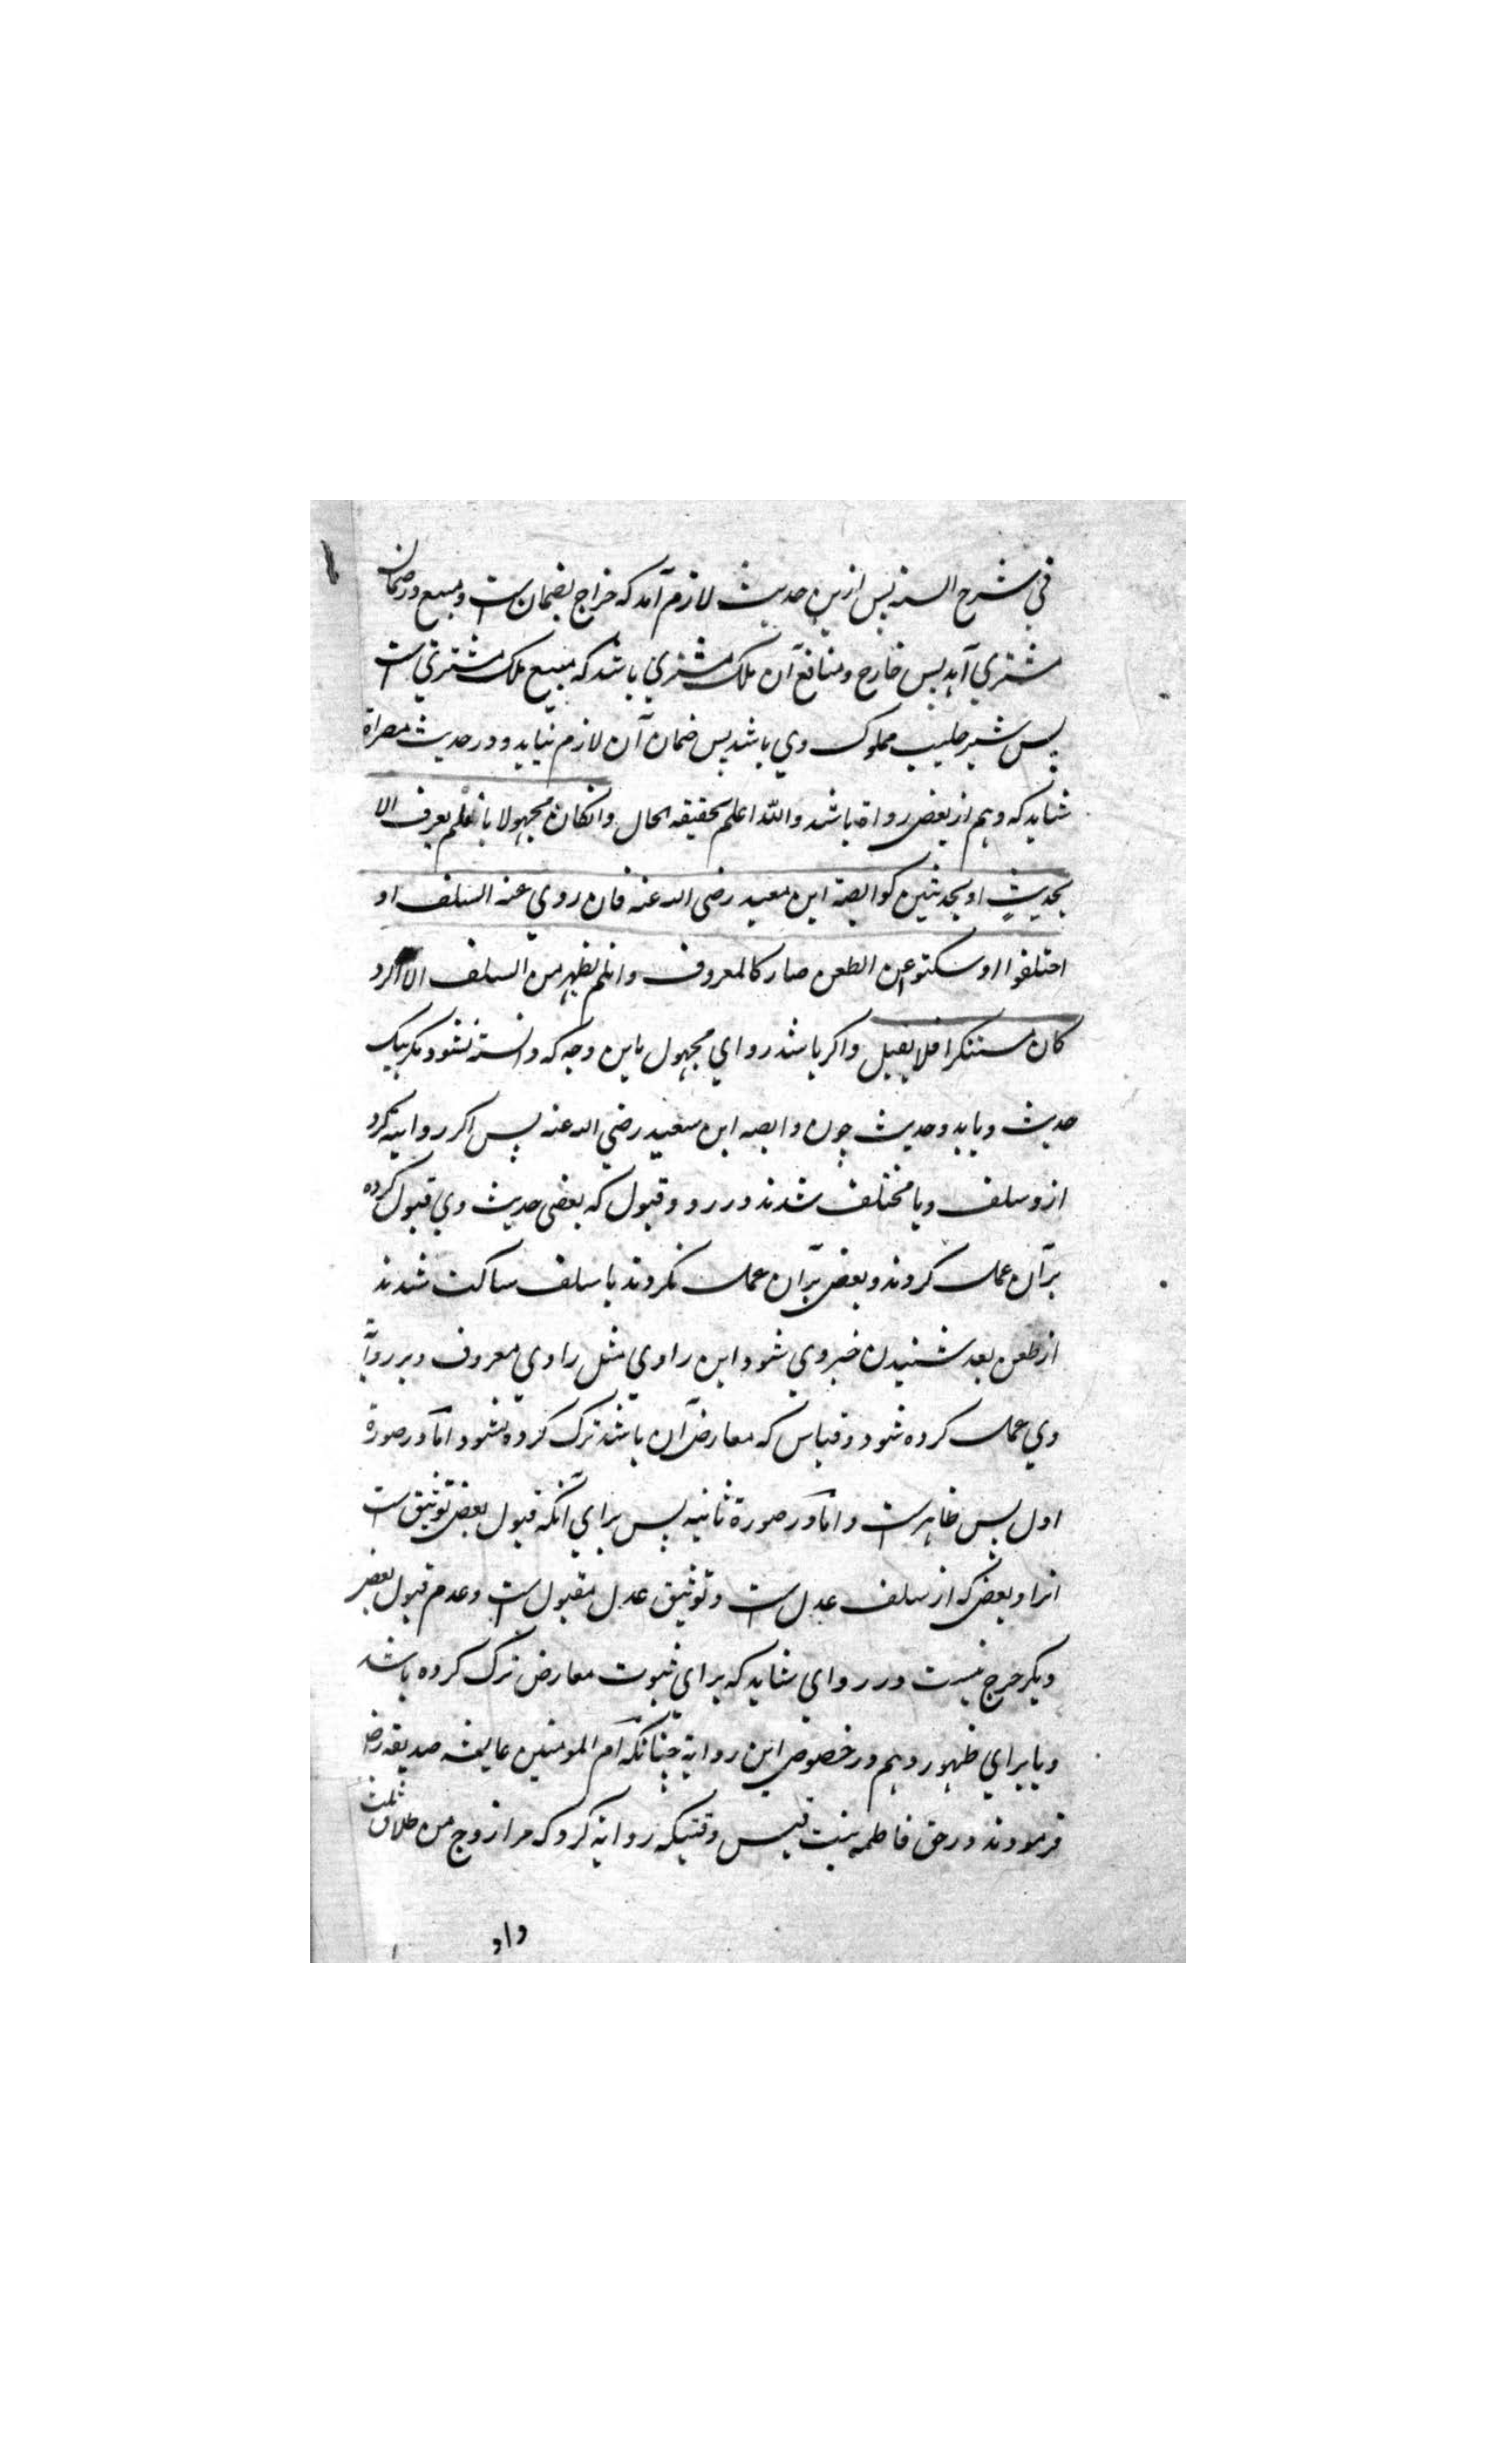 في شرح السنه پس ازين حديث لازم آمد كه خراج بضمان ست و مبيع در ضمان
مشتري آيد پس خارج و منافع آن ملك مشتري باشد كه مبيع ملك مشتري ست
پس شير حليب مملوك وي باشد پس ضمان آن لازم نيايد و در حديث مصراة
شايد كه وهم از بعض رواة باشد والله اعلم بحقيقه الحال وانكان مجهولا بانلم يعرف الا
بحديثٍ او بحديثين كوابصة ابن معبد رضى الله عنه فان روي عنه السلف او
اختلفوا او سكتوا عن الطعن صار كالمعروف وانلم يظهر من السلف الا الرد
كان مستنكرا فلا يقبل و اكر باشد رواي مجهول باين وجه كه دانسته نشود مكر بيك
حديث و يا بدو حديث چون وابصه ابن سعيد رضي الله عنه پس اكر رواية كرد
ازو سلف و يا مختلف شدند در رد و قبول كه بعضى حديث وي قبول كرده
برآن عمل كردند و بعض برآن عمل نكردند يا سلف ساكت شدند
از طعن بعد شنيدن خبر وي شود اين راوي مثل راوي معروف و بر رواية
وي عمل كرده شود و قياس كه معارض آن باشد ترك كرده نشود اما در صورة
اول پس ظاهر ست و اما در صورة ثانيه پس براي آنكه قبول بعض توثيق ست
انرا و بعض كه از سلف عدل ست و توثيق عدل مقبول ست و عدم قبول بعض
ديكر جرح نيست در رواي شايد كه براي ثبوت معارض ترك كرده باشد
و يا براي ظهور وهم در خصوص اين رواية چنانكه ام المومنين عايشه صديقه رض
فرمودند در حق فاطمه بنت قيس وقتيكه رواية كرد كه مرا زوج من طلاق ثلث
داد